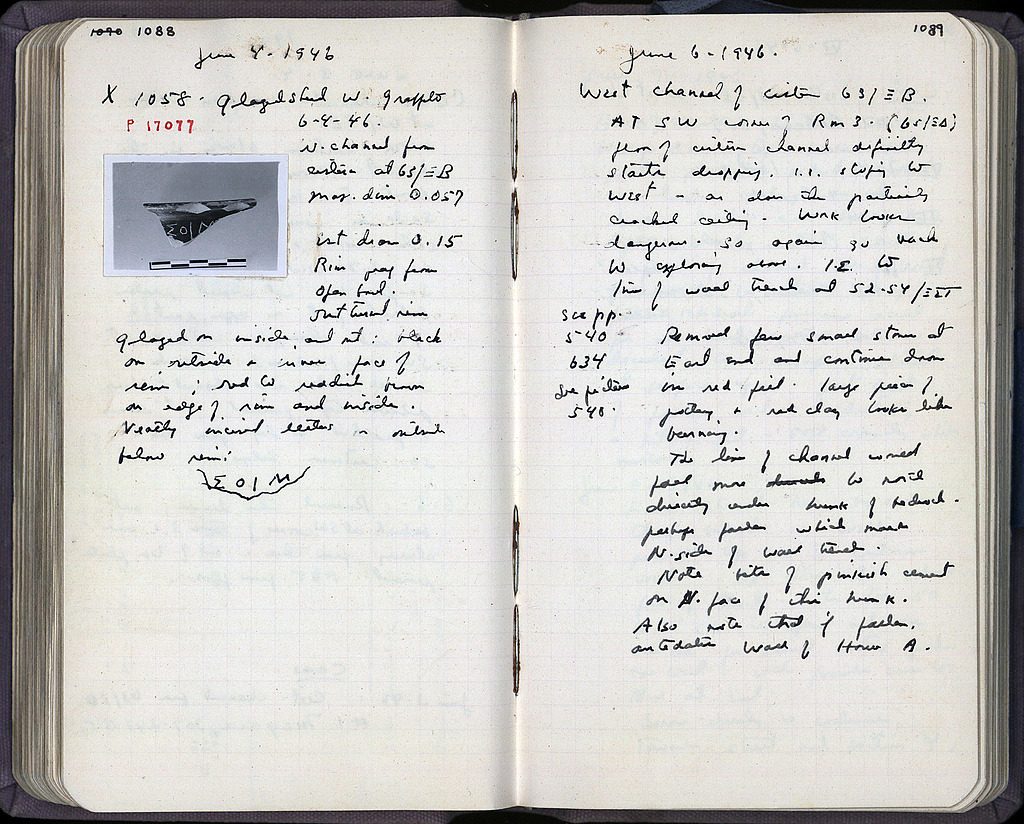 1090 1088
June 4 - 1946
X 1058 - Glazed sherd w. graffito
P 17077
6-4-46
N. channel from
cistern at 63/ΞB
max. dim 0.057
est diam 0.15
Rim frag from
open bowl.
outturned rim
Glazed on inside, and out: black
on outside & inner face of
rim; red to reddish brown
on edge of rim and inside.
Neatly incised letters on outside
below rim:
ΣΟΙΜ
1089
June 6 - 1946.
West channel of cistern 63/ΞB.
At SW corner of Rm 3. (65/ΞΔ)
floor of cistern channel definitely
starts dropping. i.e. sloping to
west - as does the
cracked ceiling. Work looks
dangerous. So again go back
to exploring above. I.E. to
line of west trench at 52-54/ΞΣΤ
see pp.
540
634
See picture
548.
Removed few small stones at
East end and continue down
in red fill. Large pieces of
pottery & red clay looks like
burning.
The line of channel
to north
directly under hunk of bedrock.
perhaps fallen which makes
N. side of west trench.
Note bits of pinkish cement
on N. face of this hunk.
Also note that if fallen,
antedates wall of House A.